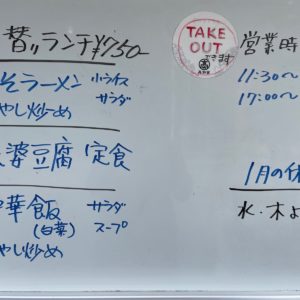 替ﾘランチ¥750-
そラーメン 小ライス
サラダ
やし炒め
婆豆腐 定食
華飯 サラダ
(白菜) スープ
やし炒め
TAKE
OUT
できます
営業時
11:30〜
17:00〜
1月の休
水・木よ